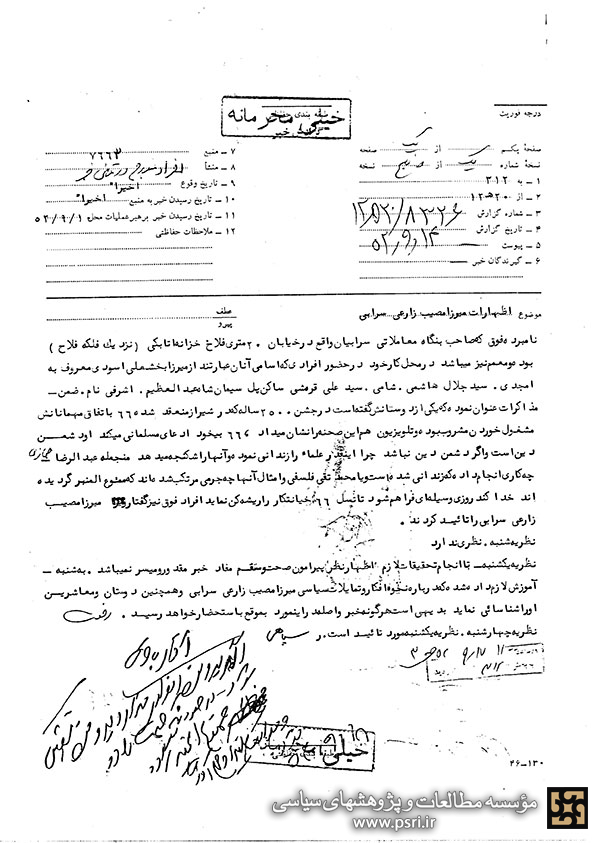 درجه فوریت
خیلی محرمانه
طبقه بندی حفاظتی
گزارش خبر
صفحه یکم از یک صفحه
نسخه شماره یک از پنج نسخه
۱ – به ۳۱۲
۲ – از ۲۰ ه‍ ۱۲
۳ – شماره گزارش
۴ – تاریخ گزارش
۵ – پیوست
۶ – گیرندگان خبر
۷ – منبع ۷۶۶۳
۸ – منشأ افراد مندرج در متن خبر
۹ – تاریخ وقوع اخیرا"
۱۰ – تاریخ رسیدن خبر به منبع اخیرا"
۱۱ – تاریخ رسیدن خبر برهبر عملیات محل ۵۲/۹/۱
۱۲ – ملاحظات حفاظتی
موضوع اظهارات میرزا مصیب زارعی سرابی
عطف
پیرو
نامبرده فوق که صاحب بنگاه معاملاتی سرابیان واقع در خیابان ۲۰ متری فلاح خزانه اتابکی (نزدیک فلکه فلاح)
بوده و معمم نیز میباشد در محل کار خود در حضور افرادی که اسامی آنان عبارتند از میرزا بخشعلی اسودی معروف به
امجدی . سید جلال هاشمی . شامی . سید علی قرمشی ساکن پل سیمان شاه عبدالعظیم . اشرفی نام . ضمن
مذاکرات عنوان نموده که یکی از دوستانش گفته است در جشن ۲۵۰۰ ساله که در شیراز منعقد شده ۶۶ با تفاق مهمانانش
مشغول خوردن مشروب بوده و تلویزیون هم این صحنه را نشان میداد ۶۶ بیخود ادعای مسلمانی میکند او دشمن
دین است و اگر دشمن دین نباشد چرا اینقدر علماء را زندانی نموده و آنها را شکنجه میدهد منجمله عبدالرضا حجازی
چه کاری انجام داده که زندانی شده است و یا محمد تقی فلسفی و امثال آنها چه جرمی مرتکب شده اند که ممنوع المنبر گردیده
اند خدا کند روزی وسیله ای فراهم شود تا نسل ۶۶ خیانتکار را ریشه کن نماید افراد فوق نیز گفتار میرزا مصیب
زارعی سرابی را تائید کردند .
نظریه شنبه . نظری ندارد
نظریه یکشنبه . با انجام تحقیقات لازم اظهار نظر پیرامون صحت و سقم مفاد خبر مقدور و میسر نمیباشد . به شنبه –
آموزش لازم داده شد که درباره نحوه افکار و تمایلات سیاسی میرزا مصیب زارعی سرابی و همچنین دوستان و معاشرین
او را شناسائی نماید بدیهی است هرگونه خبر واصله در اینمورد بموقع باستحضار خواهد رسید .
نظریه چهارشنبه . نظریه یکشنبه مورد تائید است . ر
خیلی محرمانه
۲۶–۱۳۰
مؤسسه مطالعات و پژوهشهای سیاسی
www.psri.ir